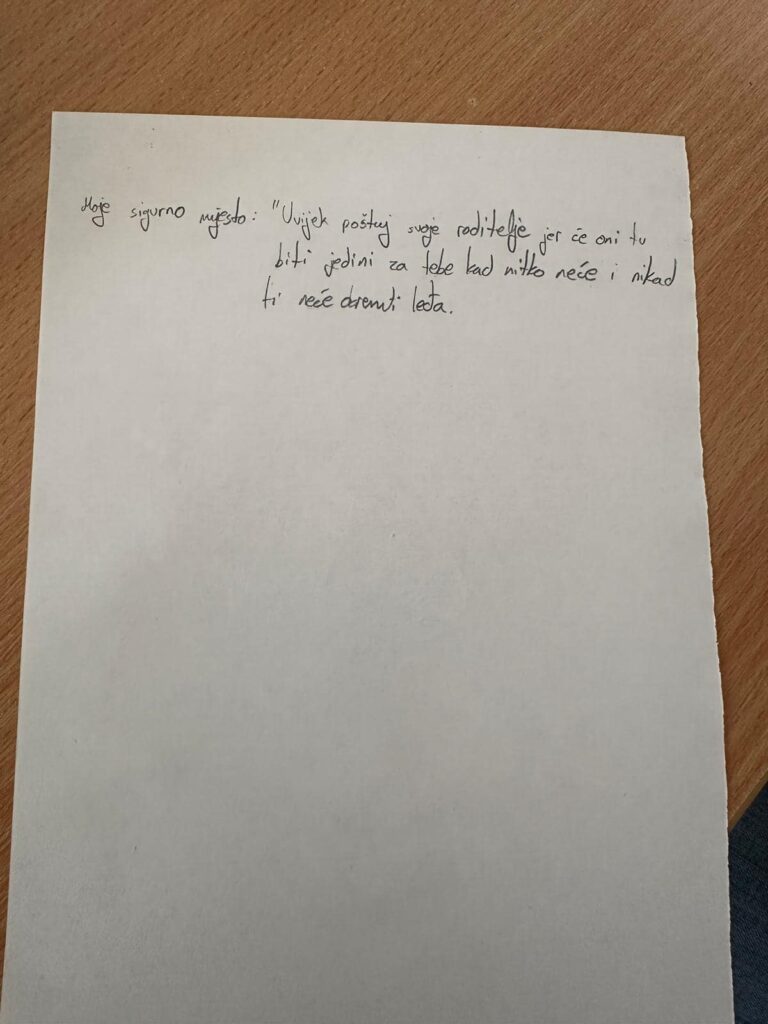 Moje sigurno mjesto: "Uvijek poštuj svoje roditelje jer će oni tu
biti jedini za tebe kad nitko neće i nikad
ti neće okrenuti leđa.